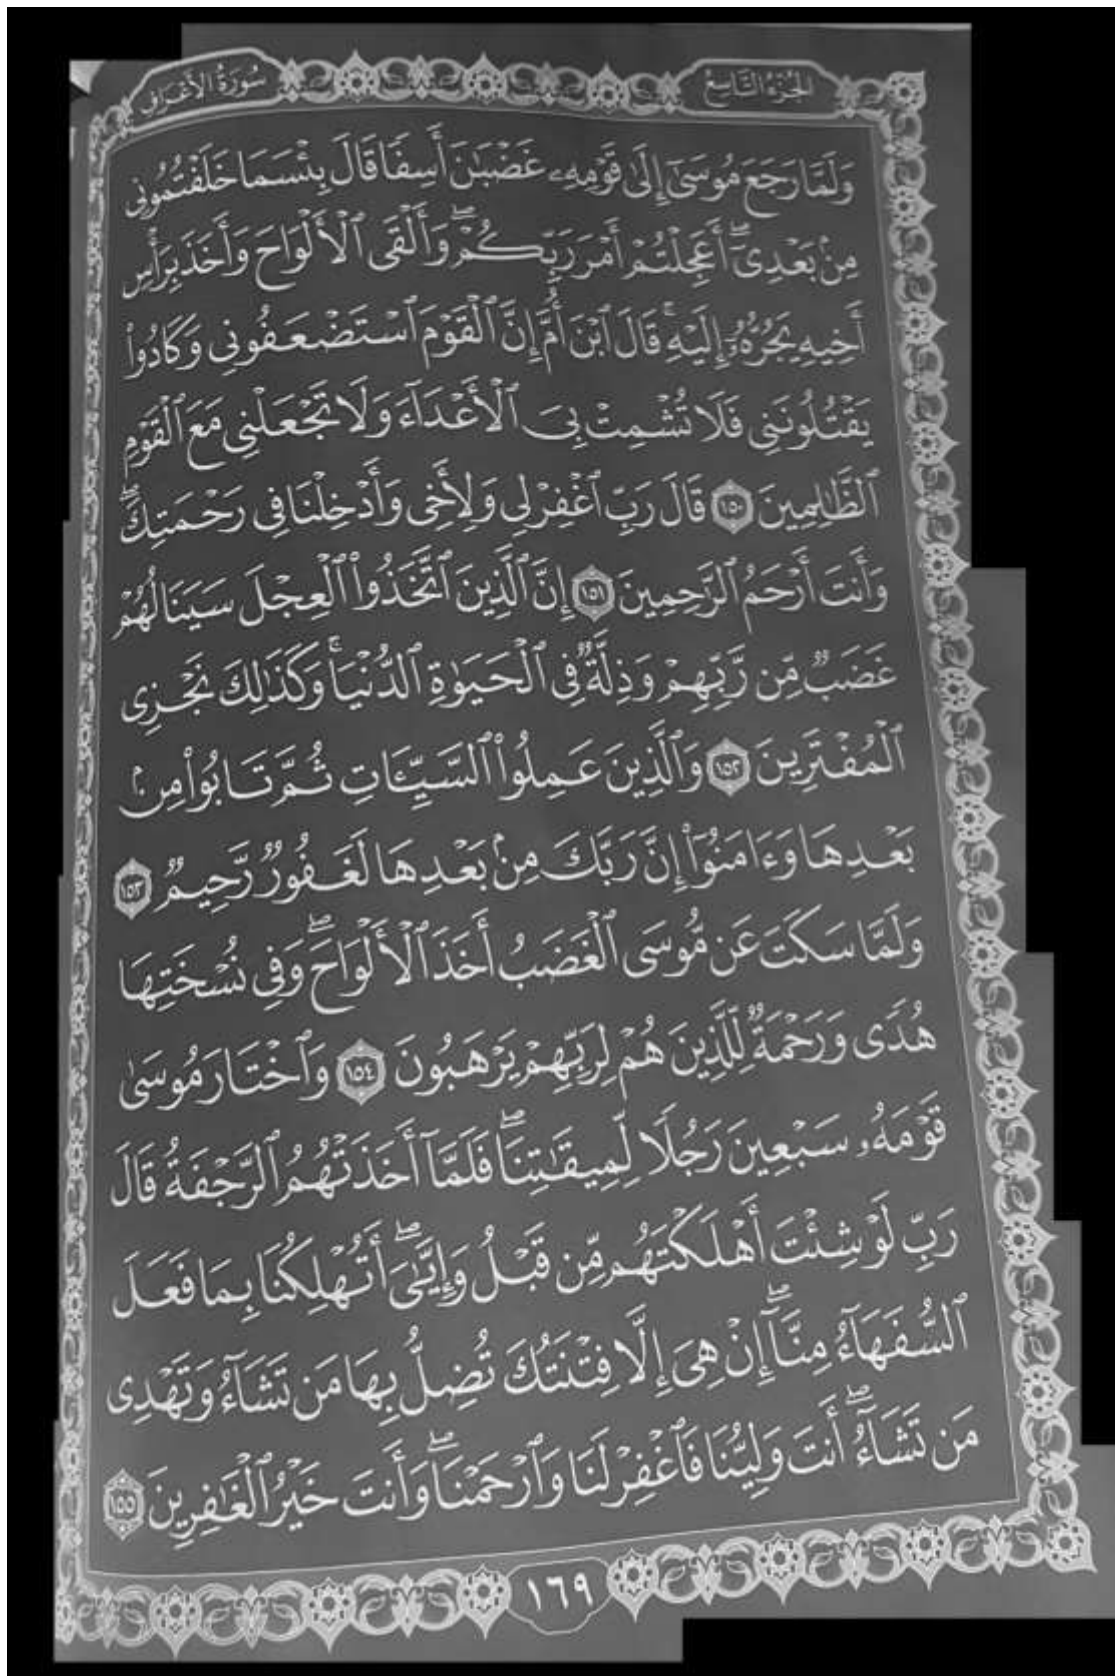 الجزء التاسع
سورة الأعراف
وَلَمَّا رَجَعَ مُوسَىٰٓ إِلَىٰ قَوْمِهِۦ غَضْبَٰنَ أَسِفًا قَالَ بِئْسَمَا خَلَفْتُمُونِي
مِنۢ بَعْدِيٓۖ أَعَجِلْتُمْ أَمْرَ رَبِّكُمْۖ وَأَلْقَى ٱلْأَلْوَاحَ وَأَخَذَ بِرَأْسِ
أَخِيهِ يَجُرُّهُۥٓ إِلَيْهِۚ قَالَ ٱبْنَ أُمَّ إِنَّ ٱلْقَوْمَ ٱسْتَضْعَفُونِي وَكَادُوا۟
يَقْتُلُونَنِي فَلَا تُشْمِتْ بِيَ ٱلْأَعْدَآءَ وَلَا تَجْعَلْنِي مَعَ ٱلْقَوْمِ
ٱلظَّٰلِمِينَ ١٥٠ قَالَ رَبِّ ٱغْفِرْ لِي وَلِأَخِي وَأَدْخِلْنَا فِي رَحْمَتِكَۖ
وَأَنتَ أَرْحَمُ ٱلرَّٰحِمِينَ ١٥١ إِنَّ ٱلَّذِينَ ٱتَّخَذُوا۟ ٱلْعِجْلَ سَيَنَالُهُمْ
غَضَبٌ مِّن رَّبِّهِمْ وَذِلَّةٌ فِي ٱلْحَيَوٰةِ ٱلدُّنْيَاۚ وَكَذَٰلِكَ نَجْزِي
ٱلْمُفْتَرِينَ ١٥٢ وَٱلَّذِينَ عَمِلُوا۟ ٱلسَّيِّـَٔاتِ ثُمَّ تَابُوا۟ مِنۢ
بَعْدِهَا وَءَامَنُوٓا۟ إِنَّ رَبَّكَ مِنۢ بَعْدِهَا لَغَفُورٌ رَّحِيمٌ ١٥٣
وَلَمَّا سَكَتَ عَن مُّوسَى ٱلْغَضَبُ أَخَذَ ٱلْأَلْوَاحَۖ وَفِي نُسْخَتِهَا
هُدًى وَرَحْمَةٌ لِّلَّذِينَ هُمْ لِرَبِّهِمْ يَرْهَبُونَ ١٥٤ وَٱخْتَارَ مُوسَىٰ
قَوْمَهُۥ سَبْعِينَ رَجُلًا لِّمِيقَٰتِنَاۖ فَلَمَّآ أَخَذَتْهُمُ ٱلرَّجْفَةُ قَالَ
رَبِّ لَوْ شِئْتَ أَهْلَكْتَهُم مِّن قَبْلُ وَإِيَّٰيَۖ أَتُهْلِكُنَا بِمَا فَعَلَ
ٱلسُّفَهَآءُ مِنَّآۖ إِنْ هِيَ إِلَّا فِتْنَتُكَ تُضِلُّ بِهَا مَن تَشَآءُ وَتَهْدِي
مَن تَشَآءُۖ أَنتَ وَلِيُّنَا فَٱغْفِرْ لَنَا وَٱرْحَمْنَاۖ وَأَنتَ خَيْرُ ٱلْغَٰفِرِينَ ١٥٥
١٦٩